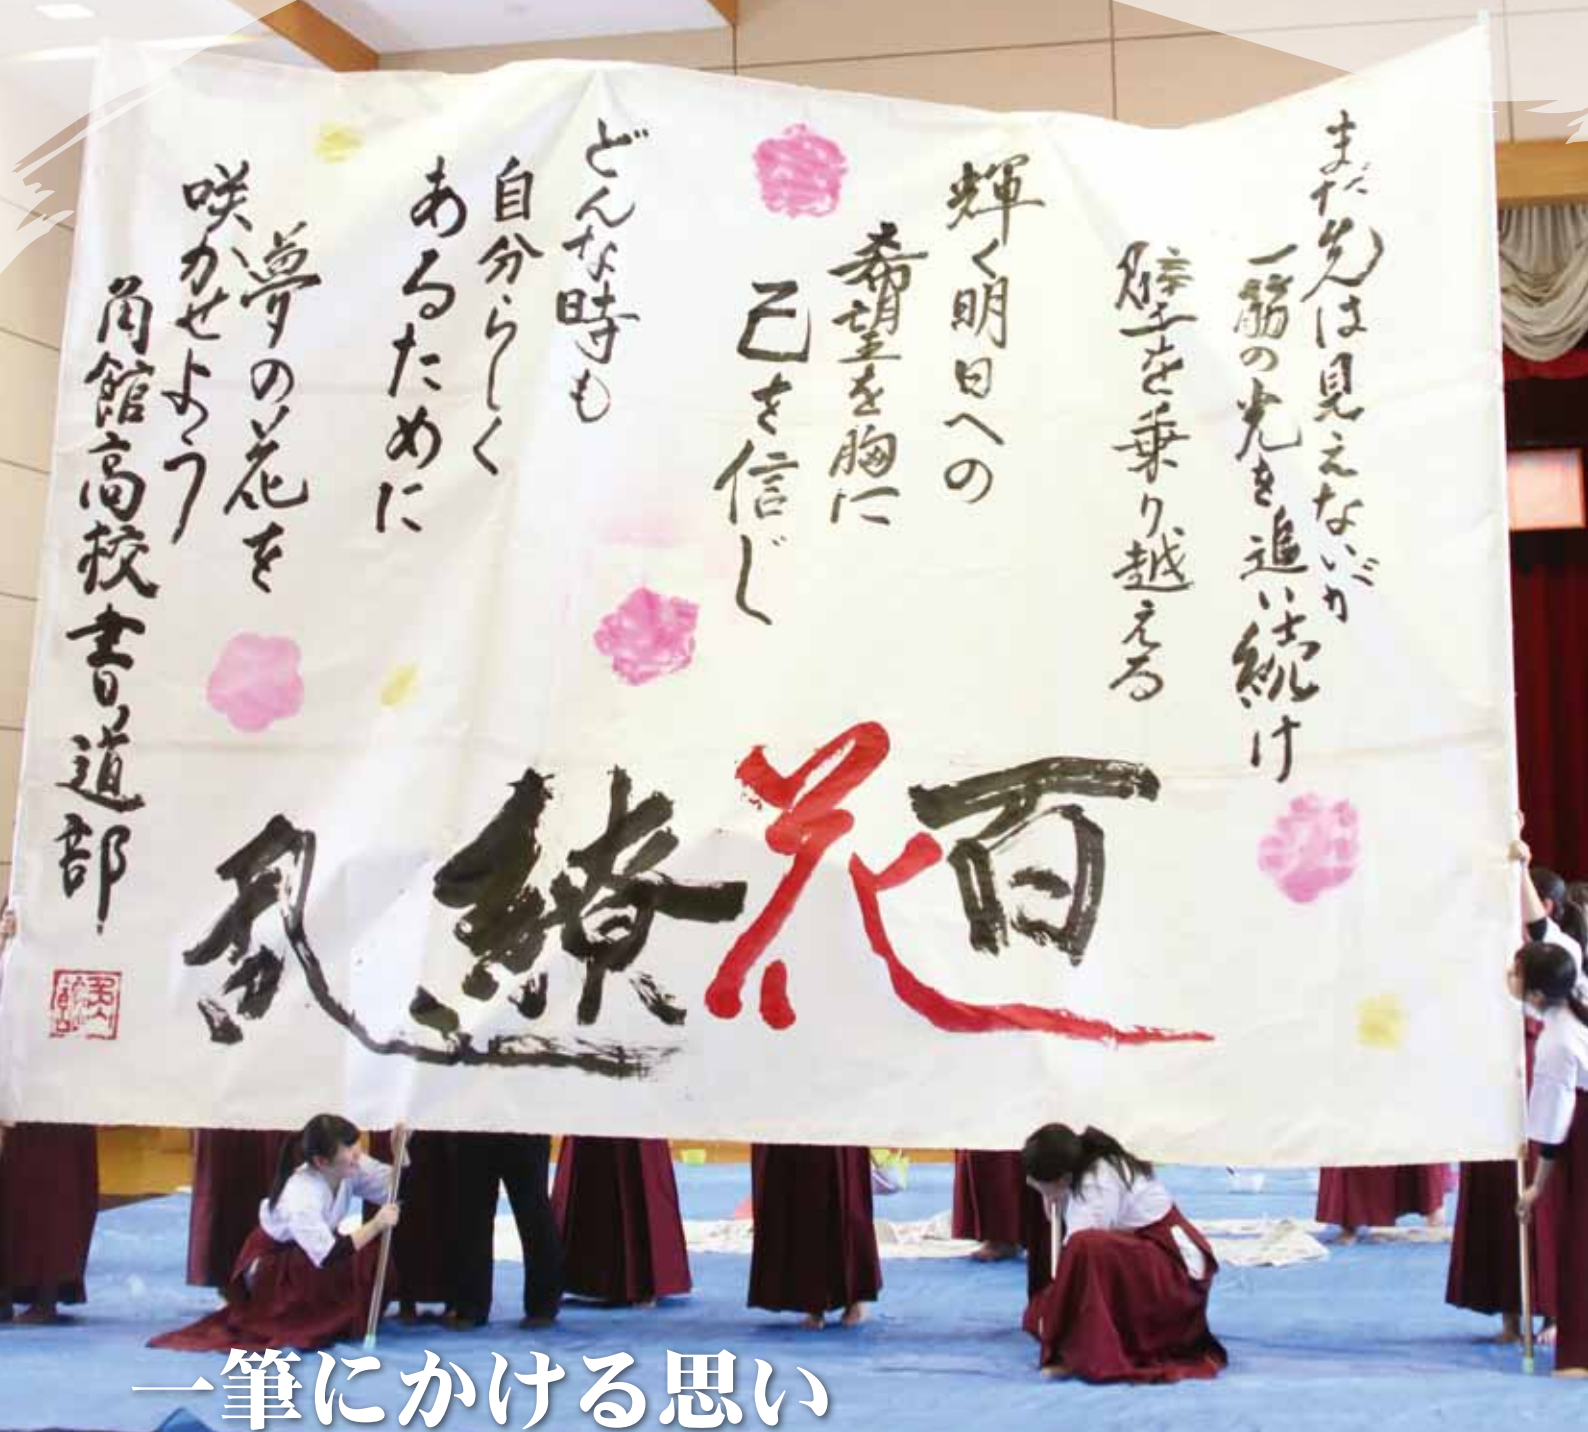 まだ先は見えないが
一筋の光を追い続け
壁を乗り越える
輝く明日への
希望を胸に
己を信じ
どんな時も
自分らしく
あるために
夢の花を
咲かせよう
角館高校書道部
百花繚乱
一筆にかける思い